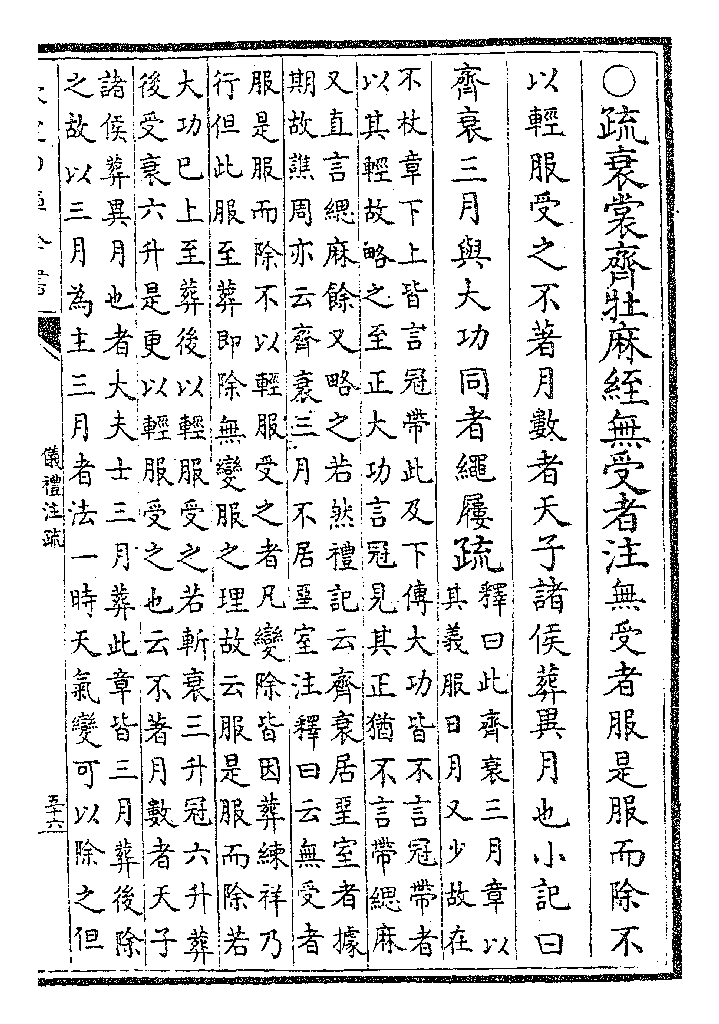 ○疏衰裳齊牡麻絰無受者注無受者服是服而除不
以輕服受之不著月數者天子諸侯葬異月也小記曰
齊衰三月與大功同者繩屨疏
釋曰此齊衰三月章以
其義服日月又少故在
不杖章下上皆言冠帶此及下傳大功皆不言冠帶者
以其輕故略之至正大功言冠見其正猶不言帶緦麻
又直言緦麻餘又略之若然禮記云齊衰居堊室者據
期故譙周亦云齊衰三月不居堊室注釋曰云無受者
服是服而除不以輕服受之者凡變除皆因葬練祥乃
行但此服至葬即除無變服之理故云服是服而除若
大功巳上至葬後以輕服受之若斬衰三升冠六升葬
後受衰六升是更以輕服受之也云不著月數者天子
諸侯葬異月也者大夫士三月葬此章皆三月葬後除
之故以三月為主三月者法一時天氣變可以除之但
儀禮注疏
五十六